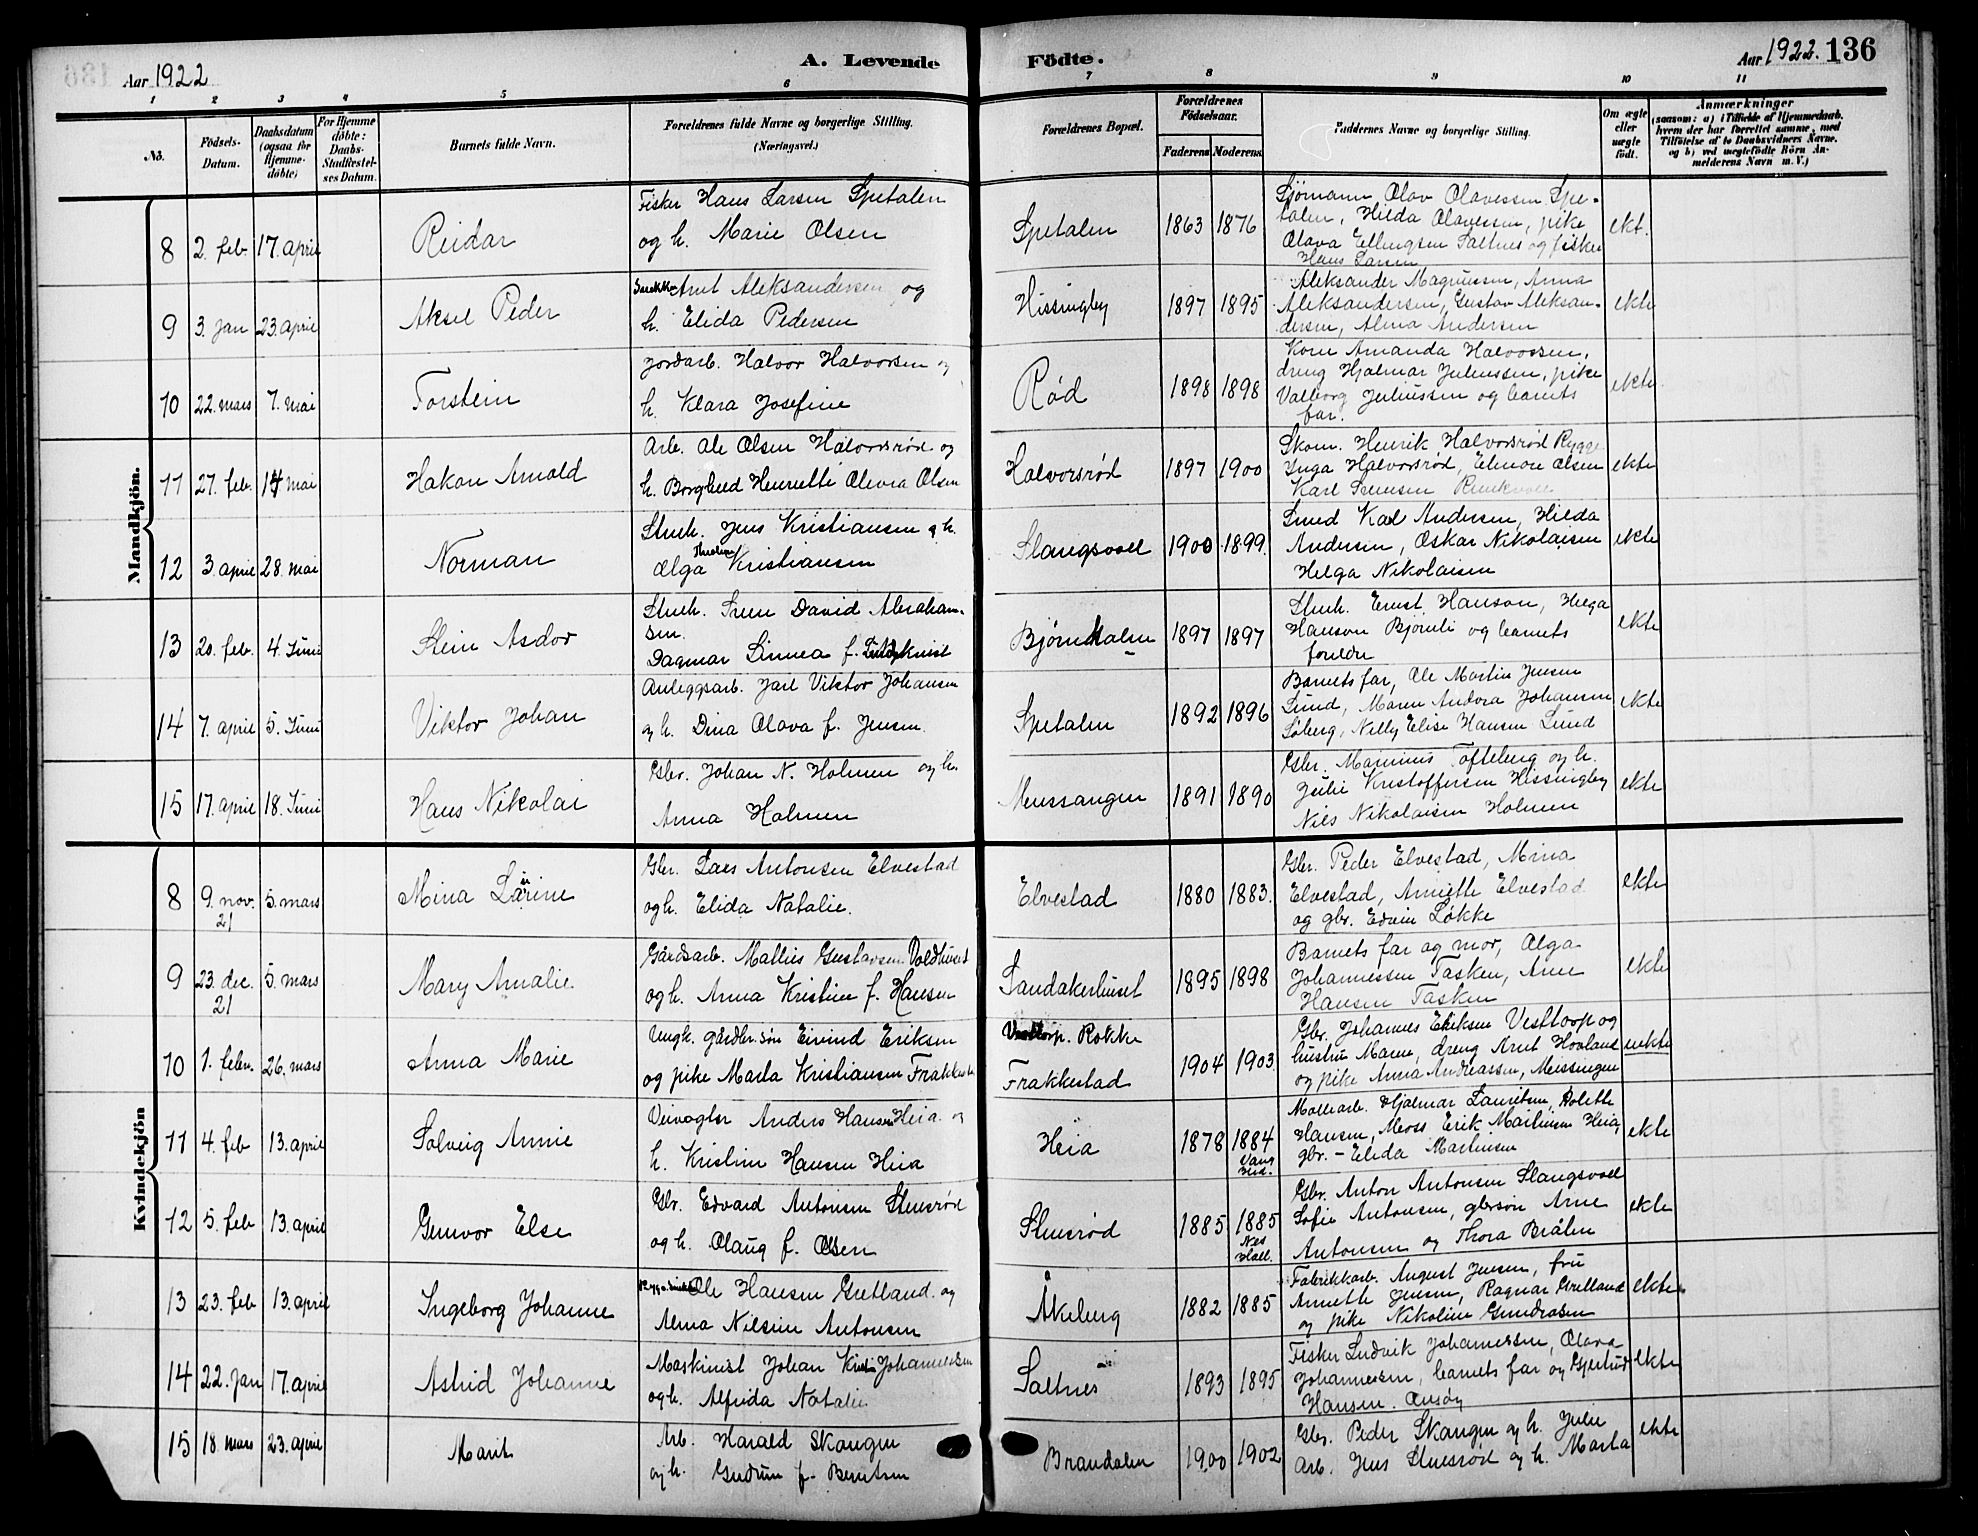 Aar 1922
A. Levende
Födte.
Aar 1922. 136
1 2 3 4 5 6 7 8 9 10 11
No.
Födsels-Datum.
Daabsdatum (ogsaa for Hjemmedöbte)
For Hjemmedöbte: Daabs-Stadfæstelses Datum.
Barnets fulde Navn.
Forældrenes fulde Navne og borgerlige Stilling. (Næringsvei.)
Forældrenes Bopæl.
Forældrenes Födselsaar.
Faderens Moderens
Faddernes Navne og borgerlige Stilling.
Om ægte eller uægte födt.
Anmærkninger
(saasom: a) i Tilfælde af Hjemmedaab, hvem der har forrettet samme, med Tilföielse af to Daabsvidners Navne. og b) ved uægtefödte Börn Anmelderens Navn m. V.)
Mandkjön.
8 2. feb. 17. april Reidar
Fisker Hans Larsen Spetalen
og h. Marie Olsen
Spetalen 1863 1876
Sjømann Olav Olavessen Spe-
talen, Hilda Olavessen, pike
Olava Ellingsen Saltnes og fisker
Hans Larsen
ekt.
9 3. jan 23. april Aksel Peder
Arnt Aleksandersen og
h. Elida Pedersen
Hissingby 1897 1895
Aleksander Magnussen, Anna
Aleksandersen, Gustav Aleksan-
dersen, Alma Andersen
ekte
10 22. mars 7. mai Torstein
Jordarb. Halvor Halvorsen og
h. Klara Josefine
Rød 1898 1898
Kone Amanda Halvorsen,
dreng Hjalmar Juliussen, pike
Valborg Juliussen og barnets
far.
ekte
11 27. feb. 14 mai Hakon Arnold
Arb. Ole Olsen Halvorsrød og
h. Borghild Henriette Olevia Olsen
Halvorsrød 1897 1900
Skom. Henrik Halvorsrød Rygge
Inga Halvorsrød, Elinore Olsen
Karl
ekte
12 3. april 28. mai Norman
Stenh. Jens Kristiansen og h.
Olga Kristiansen
Slangsvoll 1900 1899.
Smed Karl Andersen, Hilda
Andersen, Oskar Nikolaisen
Helga Nikolaisen
ekte
13 20. feb. 4. Juni Stein Asdor
Stenh. Sven David Abraham-
sen.
Dagmar Linnea f.
Bjørndalen 1897 1897
Stenh. Ernst Hanson, Helga
Hanson Bjørnli og barnets
foreldre
ekte
14 7. april 5. Juni Viktor Johan
Anleggsarb. Jarl Viktor Johansen
og h. Dina Olava f. Jensen.
Spetalen 1892 1896
Barnets far, Ole Martin Jensen
Lund, Maren Andora Johansen
Søberg, Nelly Elise Hansen Lund
ekte
15 17. april 18. Juni Hans Nikolai
Gbr. Johan N. Holmen og h.
Anna Holmen
1891 1890
Gbr. Marinius Tofteberg og h.
Julie Kristoffersen Hissingby
Nils Nikolaisen Holmen
ekte
Kvindekjön
8 9. nov. 21 5. mars Mina Larine
Gbr. Lars Antonsen Elvestad
og h. Elida Natalie.
Elvestad 1880 1883.
Gbr. Peder Elvestad, Mina
Elvestad, Annette Elvestad
og gbr. Edvin Løkke
ekte
9 23. dec. 21 5. mars Mary Amalie
Gårdsarb. Mathis Gustavsen
og h. Anna Kristine f. Hansen
Sandakerhuset 1895 1898
Barnets far og mor, Olga
Johannessen Tasken, Arne
Hansen Tasken
ekte
10 1. febr. 26. mars Anna Marie
Ungk. gårdbr. søn Eivind Eriksen
og pike Marta Kristiansen Frakkestad
Vesttorp. Rokke
Frakkestad
1904 1903.
Gbr. Johannes Eriksen Vesttorp og
hustru Maren, dreng Arnt Hovland
og pike Anna Andreassen, Meissingen
uekte
11 4. feb 13. april Solveig Annie
Veivogter Anders Hansen Heia og
h. Kristine Hansen Heia
Heia 1878 1884
Vang
Hed.
Møllearb. Hjalmar Lauritsen, Bolette
Hansen, Moss Erik Martinsen Heia,
gbr. - Elida Martinsen
ekte
12 5. feb 13. april Gunvor Else
Gbr. Edvard Antonsen Stensrød
og h. Olaug f. Olsen
Stensrød 1885 1885
Nes
Hall.
Gbr. Anton Antonsen Slangsvoll
Sofie Antonsen, gbrsøn Arne
Antonsen og Thora Bråten
ekte
13 23. feb 13. april Ingeborg Johanne
Ole Hansen Gretland og
Alma Nilsine Antonsen
Åkeberg 1882 1885
Fabrikkarb. August Jensen, fru
Annette Jensen, Ragnar Gretland
og pike Nikoline Gundrosen
ekte
14 22. jan 17. april Astrid Johanne
Maskinist Johan Johannessen
og h. Alfrida Natalie
Saltnes 1893 1895
Fisker Ludvik Johannessen, Olava
Johannessen, barnets far og Gjertrud
Hansen. Ønsøy
ekte
15 18. mars 23. april Marit
Arb. Harald Skaugen
og h. Gudrun f. Berntsen
Brandalen 1900 1902
Gbr. Peder Skaugen og h. Julie
Arb. Jens Stensrød og h. Marta
ekte